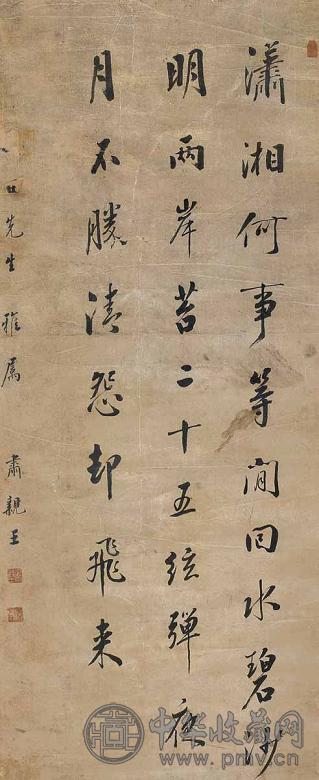 瀟湘何事等閒回水碧沙
明兩岸苔二十五絃彈夜
月不勝清怨却飛来
先生雅屬 肅親王
中华收藏网
www.pmv.cn